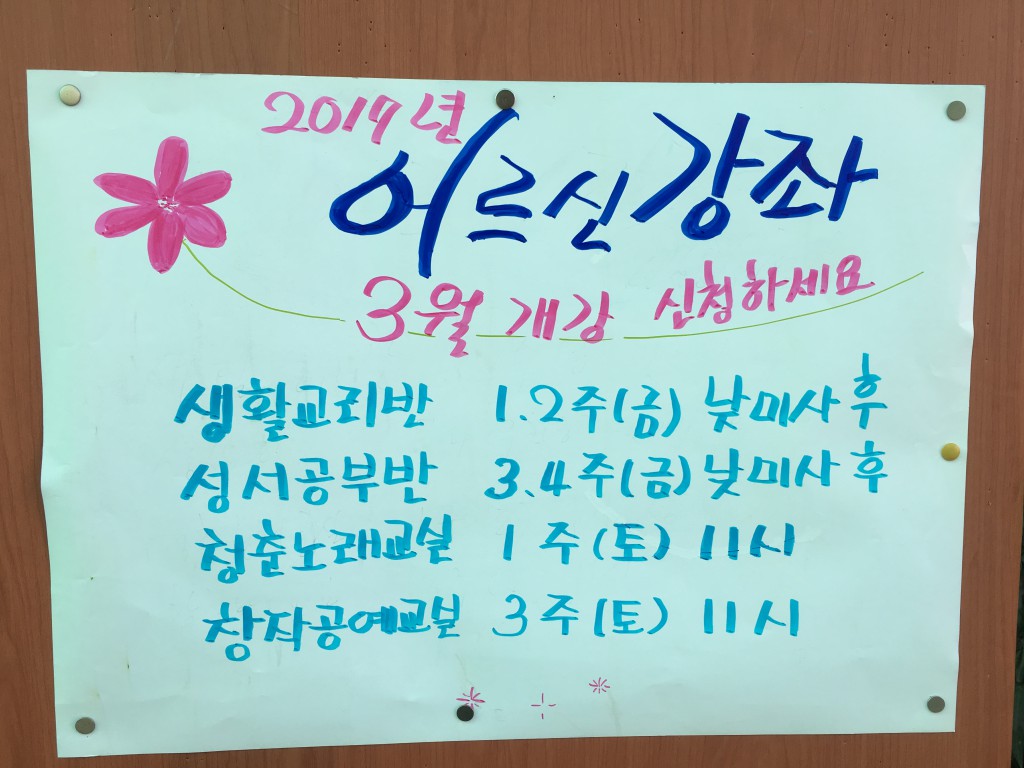 2017년
어르신강좌
3월 개강 신청하세요
생활교리반 1.2주(금) 낮미사 후
성서공부반 3.4주(금) 낮미사 후
청춘노래교실 1주(토) 11시
창작공예교실 3주(토) 11시